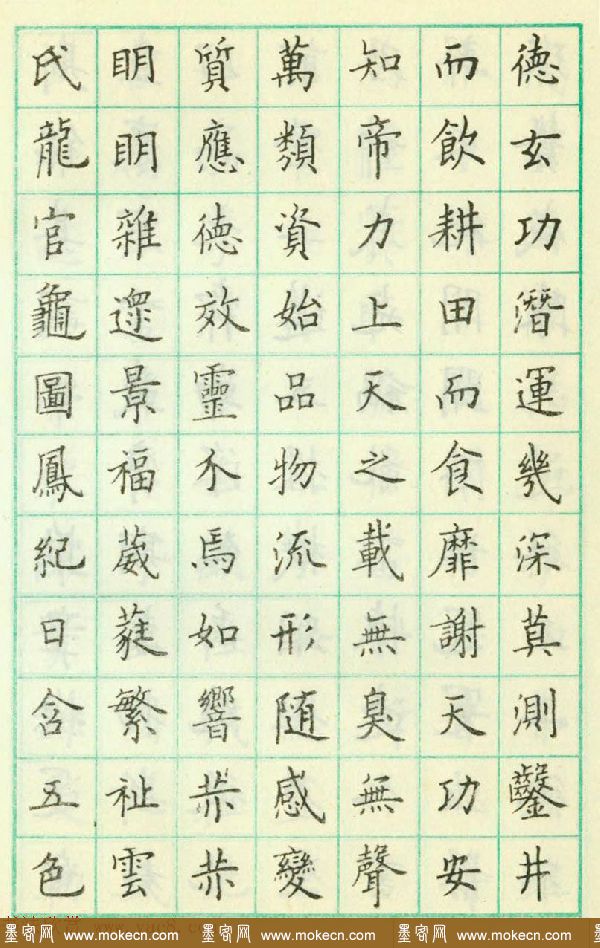 德玄功潛運幾深莫測鑿井
而飲耕田而食靡謝天功安
知帝力上天之載無臭無聲
萬類資始品物流形随感變
質應德效靈不焉如響赫赫
明明雜遝景福葳蕤繁祉雲
氏龍官龜圖鳳紀日含五色
墨客网 www.mokecn.com 墨客网 www.mokecn.com 墨客网 www.mokecn.com